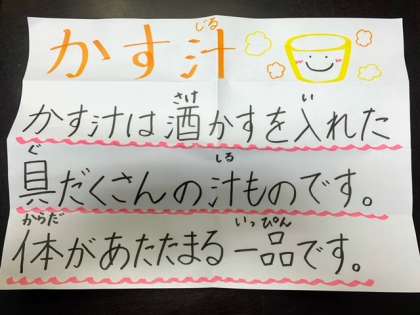 かす汁
じる
かす汁は酒かすを入れた
さけ
い
具だくさんの汁ものです。
ぐ
しる
体があたたまる一品です。
からだ
いっぴん